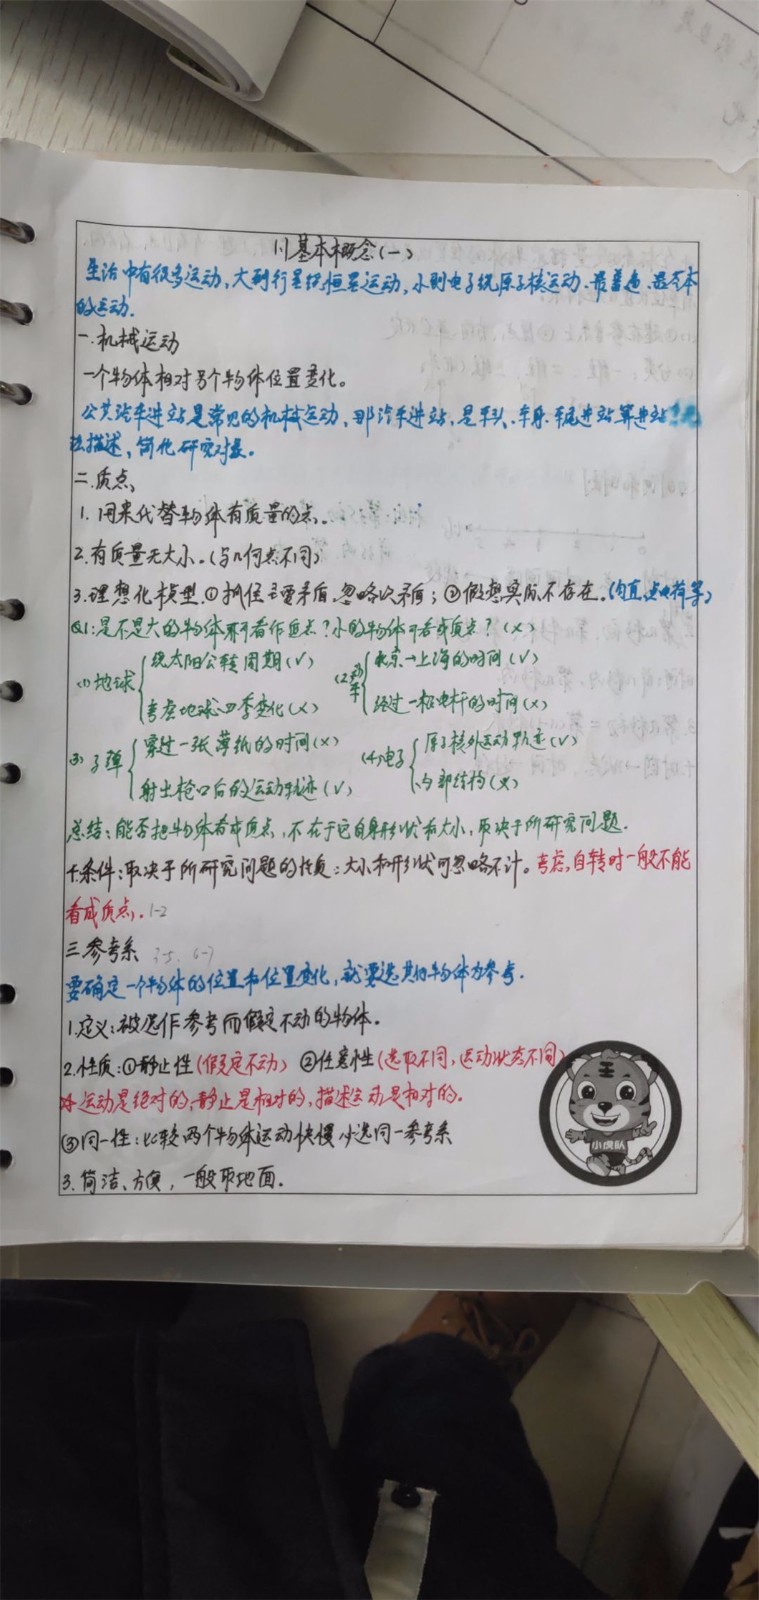 1.1基本概念(一)
生活中有很多运动,大到行星绕恒星运动,小则电子绕原子核运动.最普遍.最基本
的运动.
一.机械运动
一个物体相对另个物体位置变化。
公共汽车进站是常见的机械运动,那汽车进站,是车头.车身.车尾进站算进站?无
法描述,简化研究对象。
二.质点
1.用来代替物体有质量的点.
2.有质量无大小.(与几何点不同)
3.理想化模型.①抓住主要矛盾.忽略次矛盾;②假想实际不存在.(匀直,点电荷等)
Q1:是不是大的物体不可看作质点?小的物体可看成质点?(×)
(1)地球 绕太阳公转周期(√) (2)火车 北京→上海的时间(√)
考虑地球四季变化(×) 经过一根电杆的时间(×)
(3)子弹 穿过一张薄纸的时间(×) (4)电子 原子核外运动轨迹(√)
射出枪口后的运动轨迹(√) 内部结构(×)
总结:能否把物体看成质点,不在于它自身形状和大小,取决于所研究问题.
4.条件:取决于所研究问题的性质:大小和形状可忽略不计。考虑,自转时一般不能
看成质点. 1-2
三.参考系 6-7
要确定一个物体的位置和位置变化,就要选其他物体为参考.
1.定义:被选作参考而假定不动的物体.
2.性质:①静止性(假定不动) ②任意性(选取不同,运动状态不同)
运动是绝对的,静止是相对的,描述运动是相对的.
③同一性:比较两个物体运动快慢必选同一参考系
3.简洁、方便,一般取地面.
王
小虎队